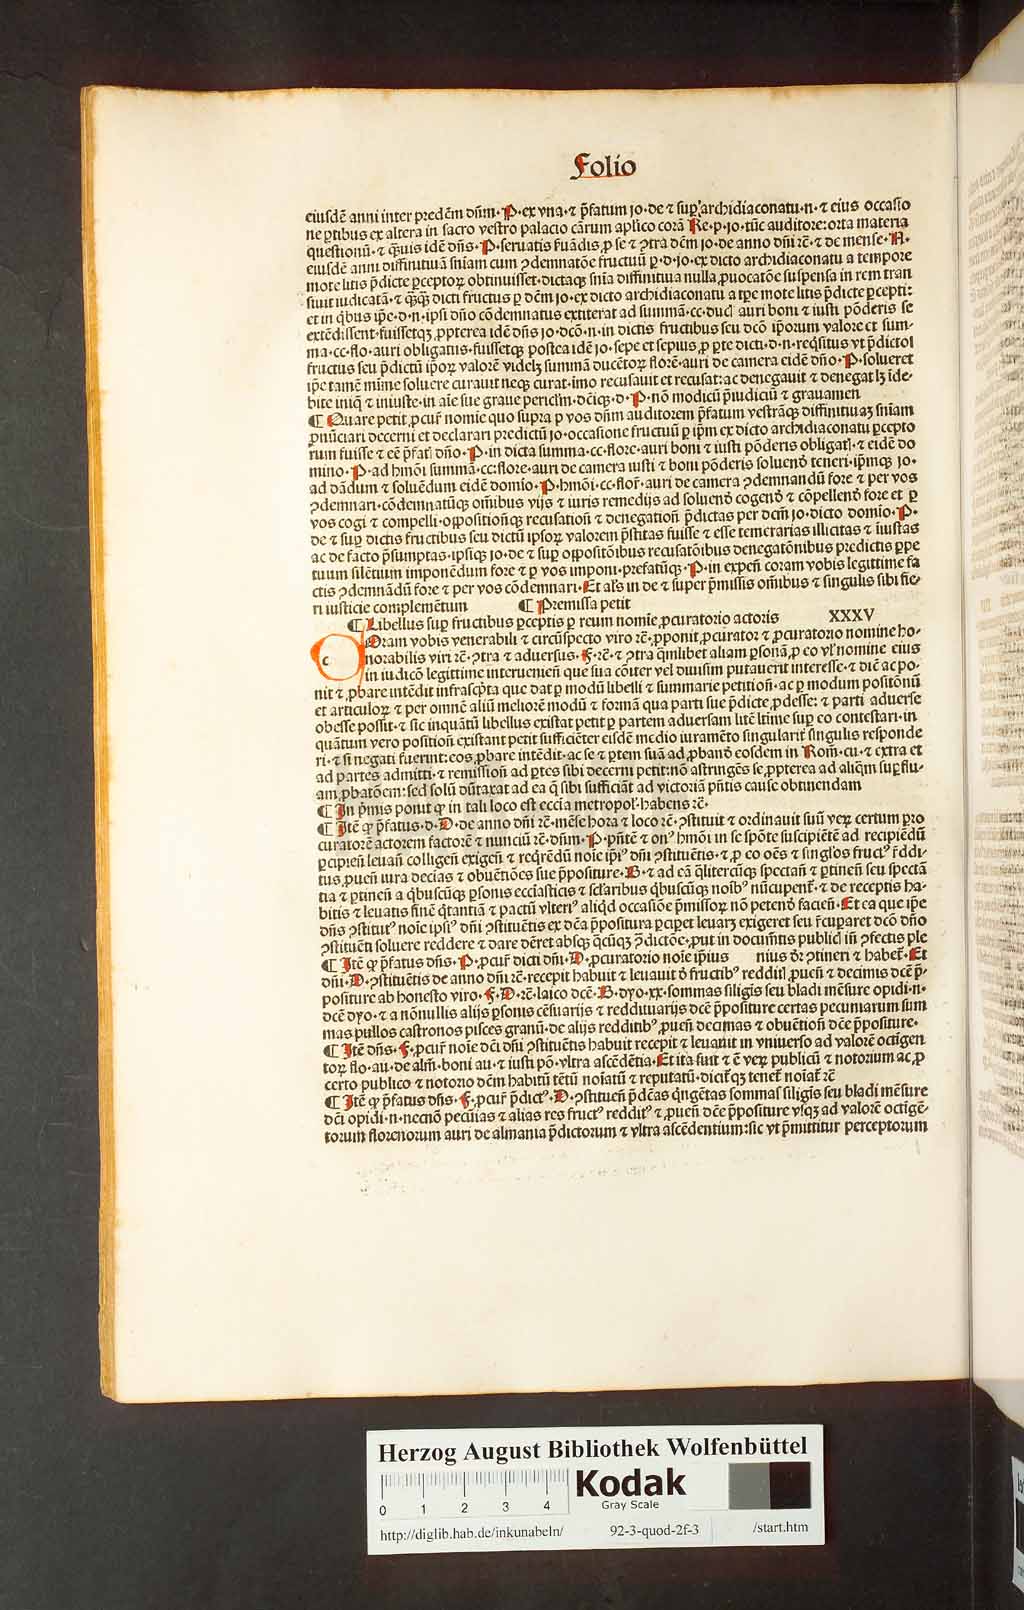 Folio
eiusdē anni inter predcm̄ dn̄m·P·ex vna·⁊ p̄fatum jo·de ⁊ suꝑ archidiaconatu·n·⁊ eius occasio
ne ꝑtibus ex altera in sacro vestro palacio cārum aplico corā Re·p·jo·tūc auditore:orta materia
questionū·⁊ idē dn̄s·P·seruatis ꝑ se ⁊ ꝯtra dc̄m jo·de anno dn̄i rc̄·⁊ de mense·A·
eiusdē anni diffinitiuā sn̄iam cum ꝯdemnatōe fructuū ꝑ·d·jo·ex dicto archidiaconatu a tempore
mote litis p̄dicte ꝑceptoꝝ obtinuisset·dictaqꝫ sn̄ia diffinitiua nulla ꝓuocatōe suspensa in rem tran
siuit iudicatā·⁊ dicti fructus ꝑ dc̄m jo·ex dicto archidiaconatu a tꝑe mote litis p̄dicte ꝑcepti:
et in qͥbus ip̄e·d·n·ipsi dn̄o cōdemnatus extiterat ad summā·cc·duc̄ auri boni ⁊ iusti pōderis se
extēdissent·fuissetqꝫ ꝓpterea idē dn̄s jo·dcō·n·in dictis fructibus seu dcō ip̄orum valore et sum-
ma·cc·flo·auri obligatus·fuissetqꝫ postea idē jo·sepe et sepius ꝓ ꝑte dicti·d·n·reqͥsitus vt p̄dictos
fructus seu p̄dictū ip̄oꝝ valorē videlꝫ summā ducētoꝝ florē·auri de camera eidē dn̄o·P·solueret
ip̄e tamē mīme soluere curauit neqꝫ curat·imo recusauit et recusat:ac denegauit ⁊ denegat lꝫ īde-
bite iniq̄ ⁊ iniuste·in aīe sue graue periclm̄·dc̄iqꝫ·d·P·nō modicū p̄iudiciū ⁊ grauamen
¶ Quare petit ꝓcur̄ nomīe quo supra ꝑ vos dn̄m auditorem p̄fatum vestrāqꝫ diffinitiuaꝫ sn̄iam
ꝓnūciari decerni et declarari predictū jo·occasione fructuū ꝑ ip̄m ex dicto archidiaconatu ꝑcepto
rum fuisse ⁊ eē p̄fatī dn̄o·P·in dicta summa·cc·flore·auri boni ⁊ iusti pōderis obligatū·⁊ eidē do
mino·P·ad hmōi summā·cc·flore·auri de camera iusti ⁊ boni pōderis soluenḋ teneri·ip̄mqꝫ jo·
ad dādum ⁊ soluēdum eidē domīo·P·hmōi·cc·flor̄·auri de camera ꝯdemnandū fore ⁊ per vos
ꝯdemnari·cōdemnatūqꝫ om̄ibus vijs ⁊ iuris remedijs ad soluenḋ cogenḋ ⁊ cōpellenḋ fore et ꝑ
vos cogi ⁊ compelli·oppositionēqꝫ recusation̄ ⁊ denegation̄ p̄dictas per dcm̄ jo·dicto domīo·P·
de ⁊ suꝑ dictis fructibus seu dictū ipsoꝝ valorem p̄stitas fuisse ⁊ esse temerarias illicitas ⁊ iniustas
ac de facto p̄sumptas·ipsiqꝫ jo·de ⁊ suꝑ oppositōibus recusatōibus denegatōnibus predictis ꝑpe
tuum silētium imponēdum fore ⁊ ꝑ vos imponi·prefatūqꝫ·P·in expen̄ coram vobis legittime fa
ctis ꝯdemnādū fore ⁊ per vos cōdemnari·Et al̄s in de ⁊ super p̄missis om̄ibus ⁊ singulis sibi fie-
ri iusticie complemētum ¶ Premissa petit
¶ Libellus suꝑ fructibus ꝑceptis ꝑ reum nomīe ꝓcuratorio actoris XXXV
c Oram vobis venerabili ⁊ circūspecto viro rc̄·ꝓponit ꝓcurator ⁊ ꝓcuratorio nomine ho-
norabilis viri rc̄·ꝯtra ⁊ aduersus·F·rc̄·⁊ ꝯtra qm̄libet aliam ꝑsonā ꝓ eo vl̄ nomine eius
in iudicō legittime interuenien̄ que sua cōiter vel diuisim putauerit interesse·⁊ dīc ac po-
nit ⁊ ꝓbare intēdit infrascp̄ta que dat ꝑ modū libelli ⁊ summarie petition̄·ac ꝑ modum positōnū
et articuloꝝ ⁊ per omnē aliū meliorē modū ⁊ formā qua parti sue p̄dicte ꝓdesse: ⁊ parti aduerse
obesse possit·⁊ sic inquātū libellus existat petit ꝑ partem aduersam litē ltīme suꝑ eo contestari·in
quātum vero position̄ existant petit sufficiēter eisdē medio iuramēto singularit̄ singulis responde
ri·⁊ si negati fuerint:eos ꝓbare intēdit·ac se ⁊ ꝑtem suā ad ꝓbanḋ eosdem in Rom̄·cu·⁊ extra et
ad partes admitti·⁊ remission̄ ad ꝑtes sibi decerni petit:nō astringēs se ꝓpterea ad aliqm̄ suꝑflu-
am ꝓbatōem:sed solū dūtaxat ad ea q̄ sibi sufficiāt ad victoriā pn̄tis cause obtinendam
¶ In p̄mis ponit ꝙ in tali loco est eccīa metropol̄·habens rc̄·
¶ Itē ꝙ p̄fatus·d·D·de anno dn̄i rc̄·mēse hora ⁊ loco rc̄·ꝯstituit ⁊ ordinauit suū veꝝ certum ꝓro
curatorē actorem factorē ⁊ nunciū rc̄·dn̄m·P·pn̄tē ⁊ onꝰ hmōi in se spōte suscipiētē ad recipiēdū
ꝑcipien̄ leuan̄ colligen̄ exigen̄ ⁊ reqͥrēdū noīe ip̄iꝰ dn̄i ꝯstituētis·⁊ ꝓ eo oēs ⁊ singl̄os fructꝰ r̄ddi-
tus ꝓuen̄ iura decias ⁊ obuētiōes sue p̄positure·B·⁊ ad eā qͣlitercūqꝫ spectan̄ ⁊ ꝑtinen̄ seu spectā
tia ⁊ ꝑtinen̄ a qͥbuscūqꝫ ꝑsonis ecciāsticis ⁊ scl̄aribus qͥbuscūqꝫ noībꝰ nūcupent̄·⁊ de receptis ha-
bitis ⁊ leuatis finē qͥtantiā ⁊ pactū vlteriꝰ aliqͥd occasiōe p̄missoꝝ nō petenḋ facien̄·Et ea que ip̄e
dn̄s ꝯstitutꝰ noīe ipsiꝰ dn̄i ꝯstituētis ex dc̄a p̄positura ꝑciꝑet leuarꝫ exigeret seu r̄cuꝑaret dcō dn̄o
ꝯstituēti soluere reddere ⁊ dare dēret absqꝫ qͥcūqꝫ ꝯdictōe·put in documētis publicis in̄ ꝯfectis ple
¶ Itē ꝙ p̄fatus dn̄s·P·ꝓcur̄ dicti dn̄i·D·ꝓcuratorio noīe ip̄ius nius dr̄ ꝯtineri ⁊ habet̄·Et
dn̄i·D·ꝯstituētis de anno dn̄i rc̄·recepit habuit ⁊ leuauit ḋ fructibꝰ reddit̄ ꝓuen̄ ⁊ decimis dcē p̄-
positure ab honesto viro·F·D·rc̄·laico dcē·B·dyo·xx·sommas siligīs seu bladi mēsure opidi·n·
dcē dyo·⁊ a nōnullis alijs ꝑsonis cēsuarijs ⁊ reddituarijs dcē p̄positure certas pecuniarum sum
mas pullos castronos pisces granū·de alijs redditibꝰ ꝓuen̄ decimas ⁊ obuētion̄ dcē p̄positure·
¶ Itē dn̄s·F·ꝓcur̄ noīe dc̄i dn̄i ꝯstituētis habuit recepit ⁊ leuauit in vniuerso ad valorē octīgen
toꝝ flo·au·de alm̄·boni au·⁊ iusti pō·vltra ascēdētia·Et ita fuit ⁊ ē veꝝ publicū ⁊ notorium ac ꝓ
certo publico ⁊ notorio dc̄m habitū tētū noīatū ⁊ reputatū·dicit̄qꝫ tenet̄ noīat̄ rc̄
¶ Itē ꝙ p̄fatus dn̄s·F·ꝓcur̄ p̄dictꝰ·D·ꝯstituen̄ p̄dc̄as qͥngētas sommas siligīs seu bladi mēsure
dc̄i opidi·n·necnō pecūias ⁊ alias res fructꝰ redditꝰ ⁊ ꝓuen̄ dcē p̄positure vsqꝫ ad valorē octīgē-
torum florenorum auri de almania p̄dictorum ⁊ vltra ascēdentium:sic vt p̄mittitur perceptorum
Herzog August Bibliothek Wolfenbüttel
0 1 2 3 4
Kodak
Gray Scale
http://diglib.hab.de/inkunabeln/ 92-3-quod-2f-3 /start.htm